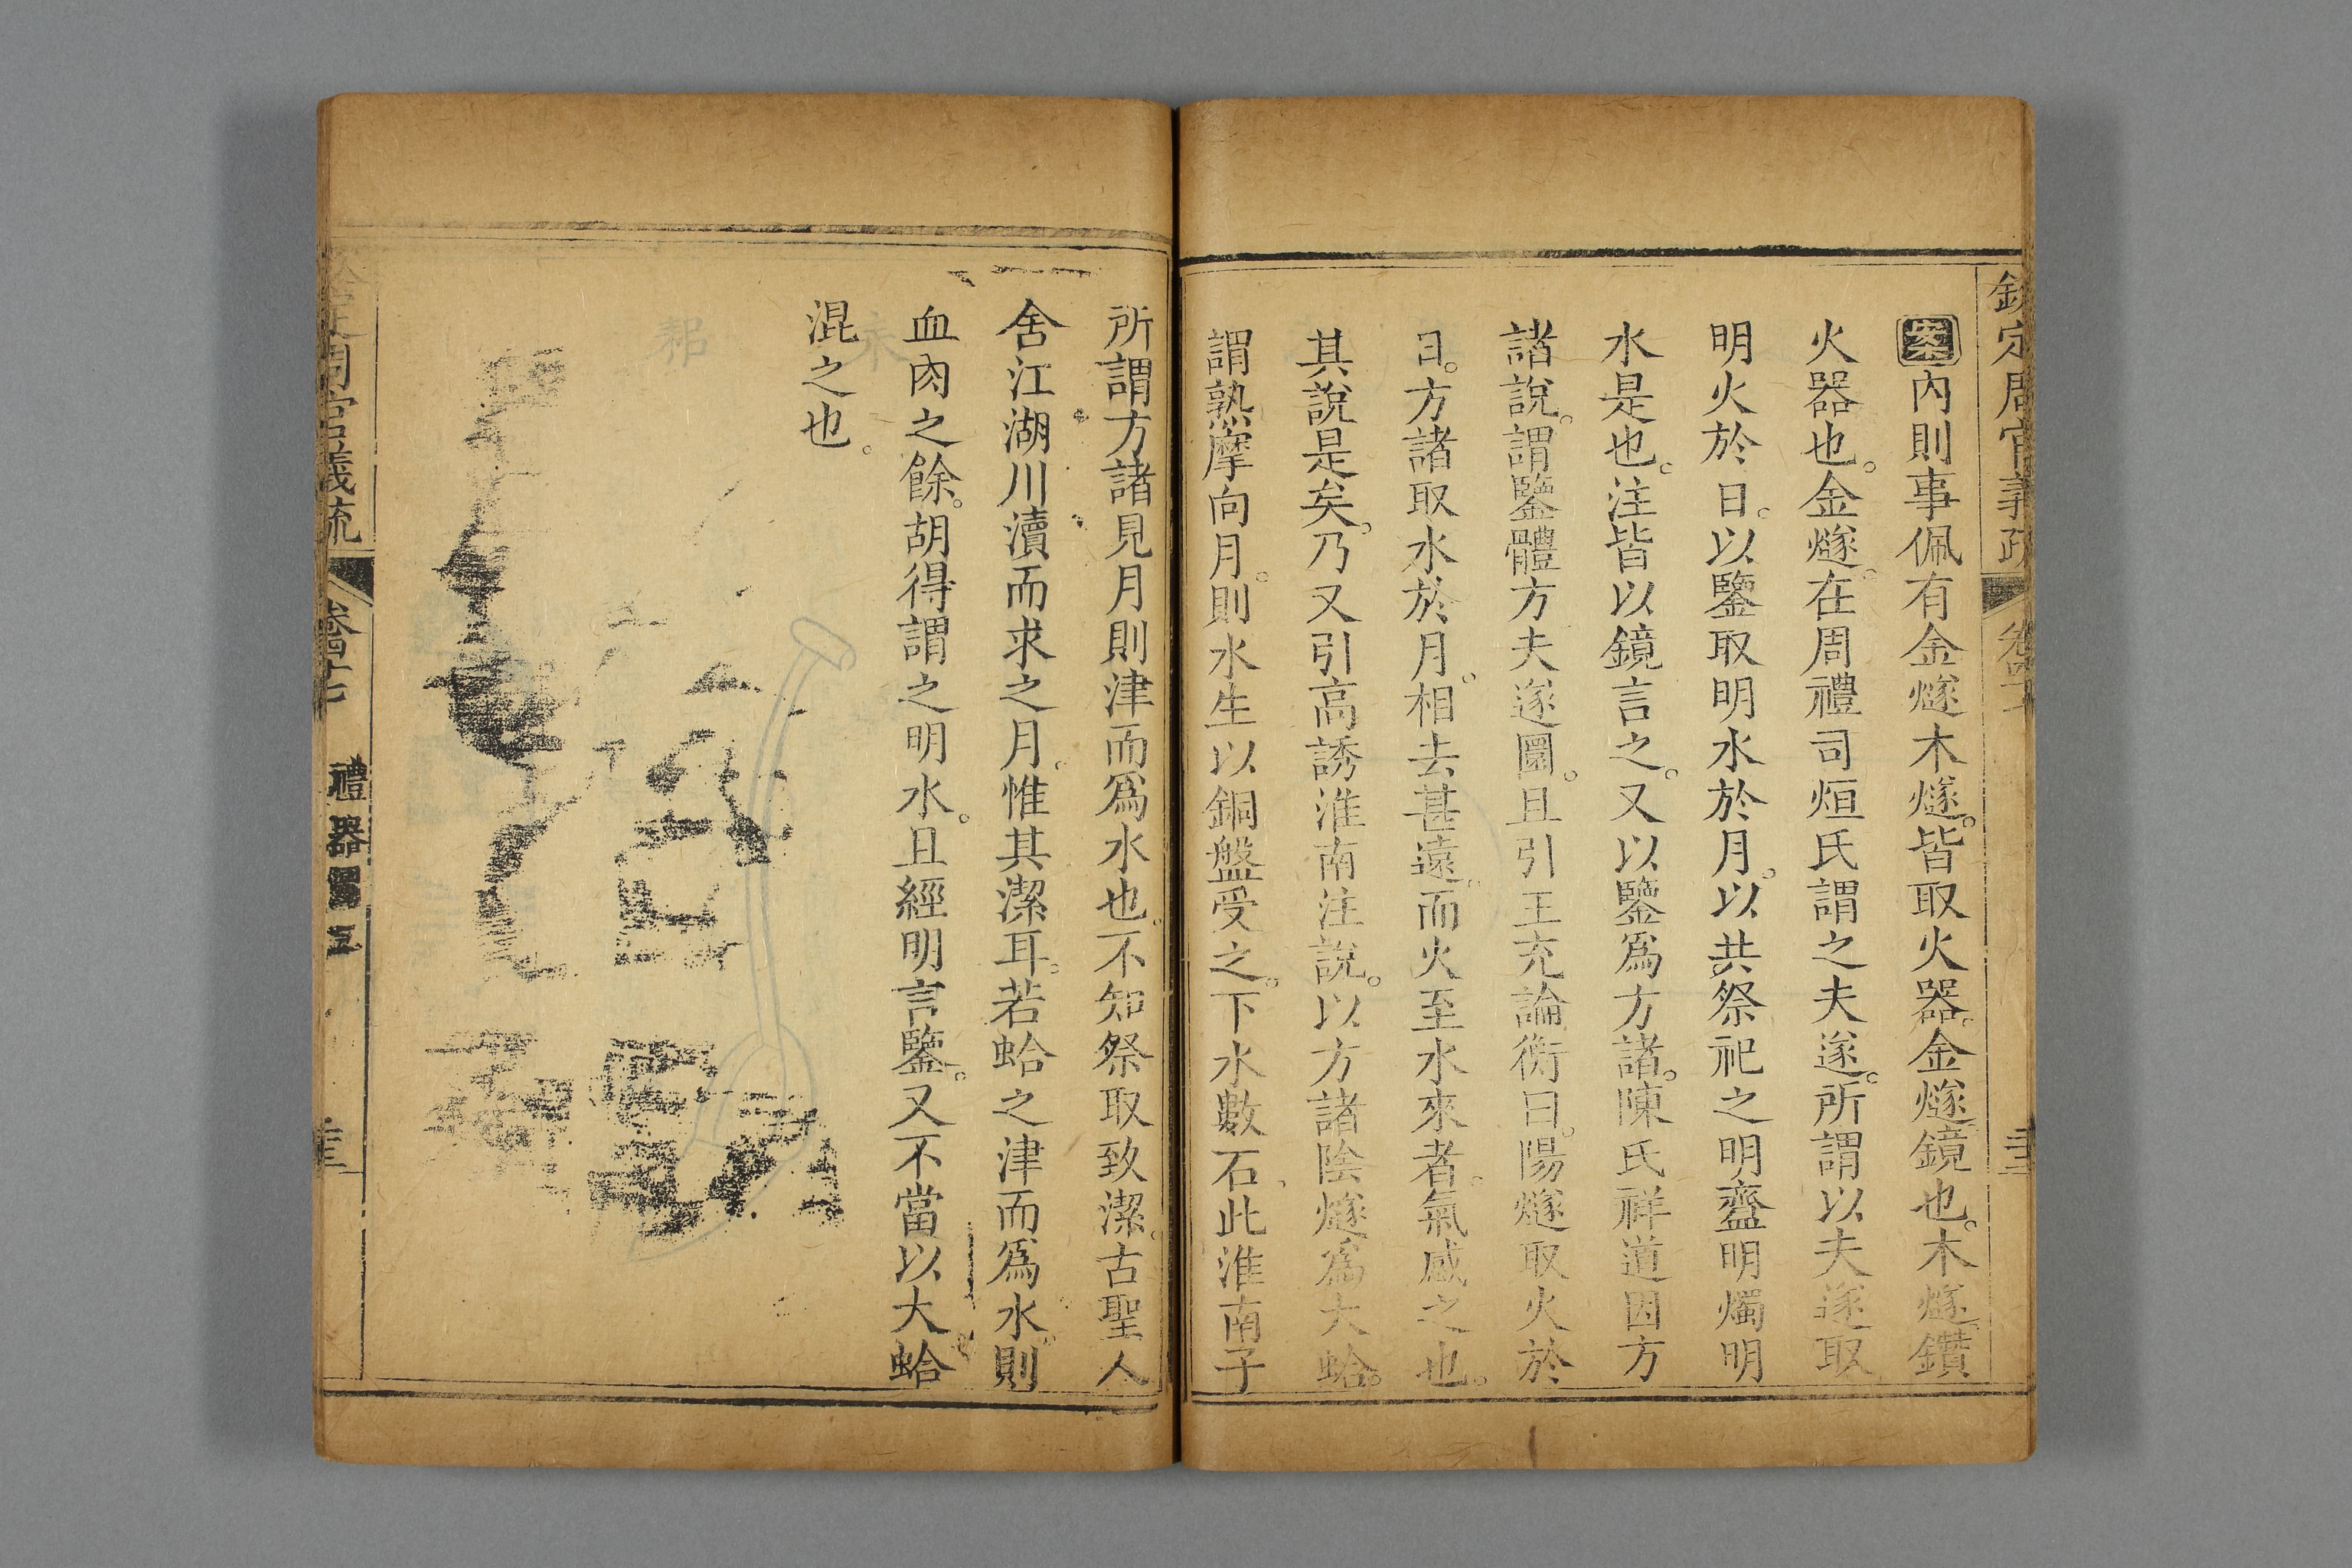 欽定周官義疏 卷四十 三十二
案內則事佩有金燧木燧。皆取火器。金燧鏡也。木燧鑽
火器也。金燧。在周禮司烜氏謂之夫遂。所謂以夫遂取
明火於日。以鑒取明水於月。以共祭祀之明齍明燭明
水是也。注皆以鏡言之。又以鑒爲方諸。陳氏祥道因方
諸說。謂鑒體方夫遂圓。且引王充論衡曰。陽燧取火於
日。方諸取水於月。相去甚遠。而火至水來者。氣感之也。
其說是矣。乃又引高誘淮南注說。以方諸陰燧爲大蛤。
謂熟摩向月。則水生以銅盤受之。下水數石此淮南子
所謂方諸見月則津而爲水也。不知祭取致潔。古聖人
舍江湖川瀆而求之月。惟其潔耳。若蛤之津而爲水。則
血肉之餘。胡得謂之明水。且經明言鑒。又不當以大蛤
混之也。
周官義疏 禮器圖五